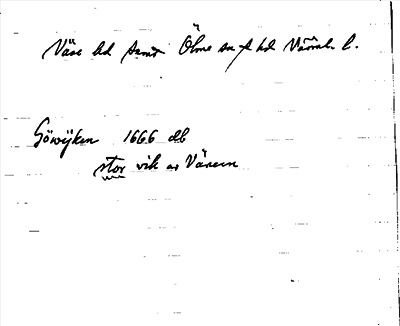 Väse hd samt Ölme sn o hd Värml. l.
Göwijken 1666 db
stor vik av Vänern